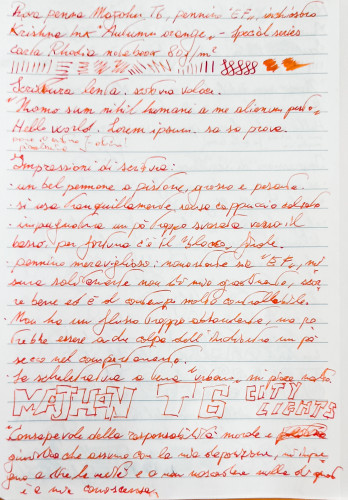 Prova penna Majohn T6, pennino "EF", inchiostro
Krishna Ink "Autumn orange" - special series
Carta Rhodia notebook 80g/m²
Scrittura lenta. scrittura veloce.
"Homo sum nihil humani a me alienum puto"
Hello world. Lorem ipsum. sa sa prova.
Impressioni di scrittura:
· un bel pennone a pistone, grosso e pesante.
· si usa tranquillamente senza cappuccio calzato
· impugnatura un pò troppo svasata verso il
basso, per fortuna c'è il "blocco" finale.
· pennino meraviglioso: nonostante sia "EF", mi
sura solitamente non di mio gradimento, scor
re bene ed è al contempo molto controllabile.
· Non ha un flusso troppo abbondante, ma po
trebbe essere a di colpa dell'inchiostro un pò
secco nel comportamento.
· La scheletratura a tema "urbano" mi piace molto
MAJOHN T6 CITY
LIGHTS
"Consapevole della responsabilità morale e
giuridica che assumo con la mia deposizione, mi impe
gno a dire la verità e a non nascondere nulla di quanto
è a mia conoscenza"